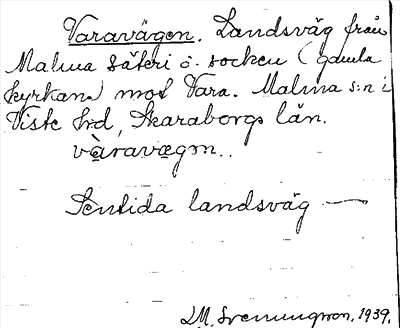 Varavägen. Landsväg från
Malma säteri o. socken (gamla
kyrkan) mot Vara. Malma s:n i
Viste hrd, Skaraborgs län.
vàravægən..
Sentida landsväg —
LM. Svenungsson, 1939.